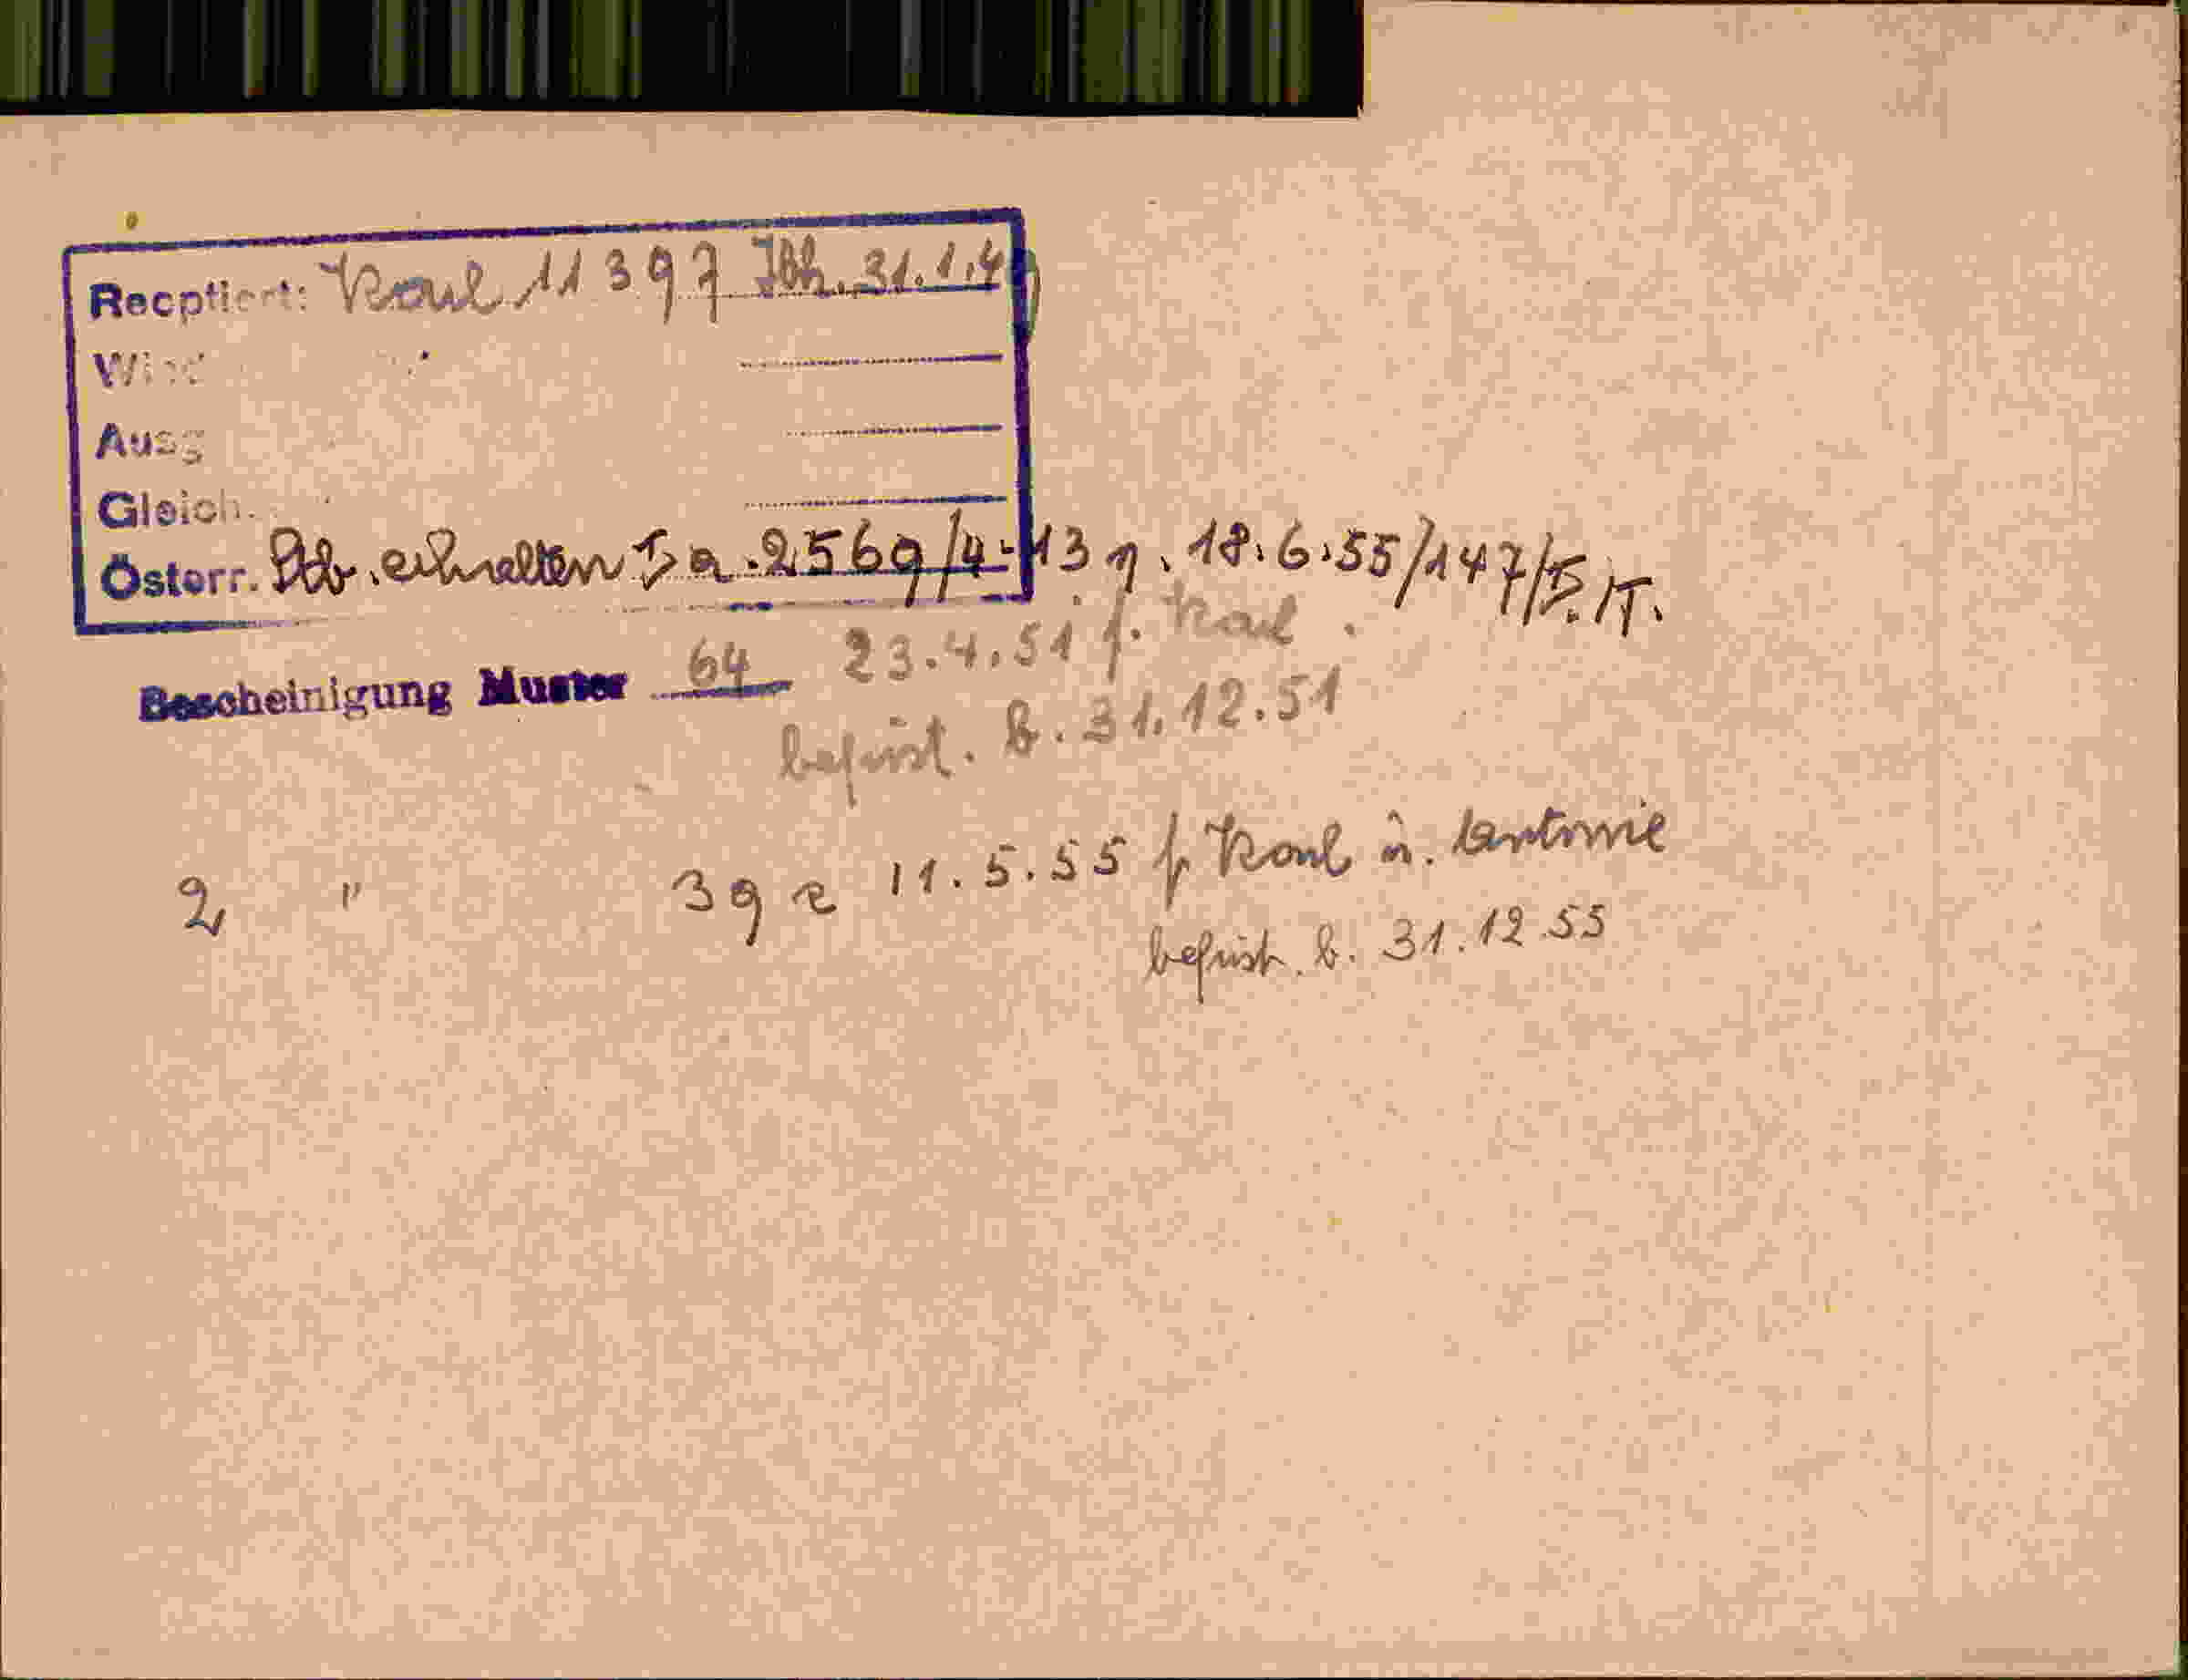 Recptiert: Karl 11397 Ibk. 31.1.4
Wird
Ausg
Gleich.
Österr. Stb. erhalten I a - 2569/4-13 v. 18.6.55/147/
Bescheinigung Muster 64 23.4.51 f. Karl.
befrist. b. 31.12.51
2 " 39 a 11.5.55 f. Karl u. Antonie
befrist. b. 31.12.55